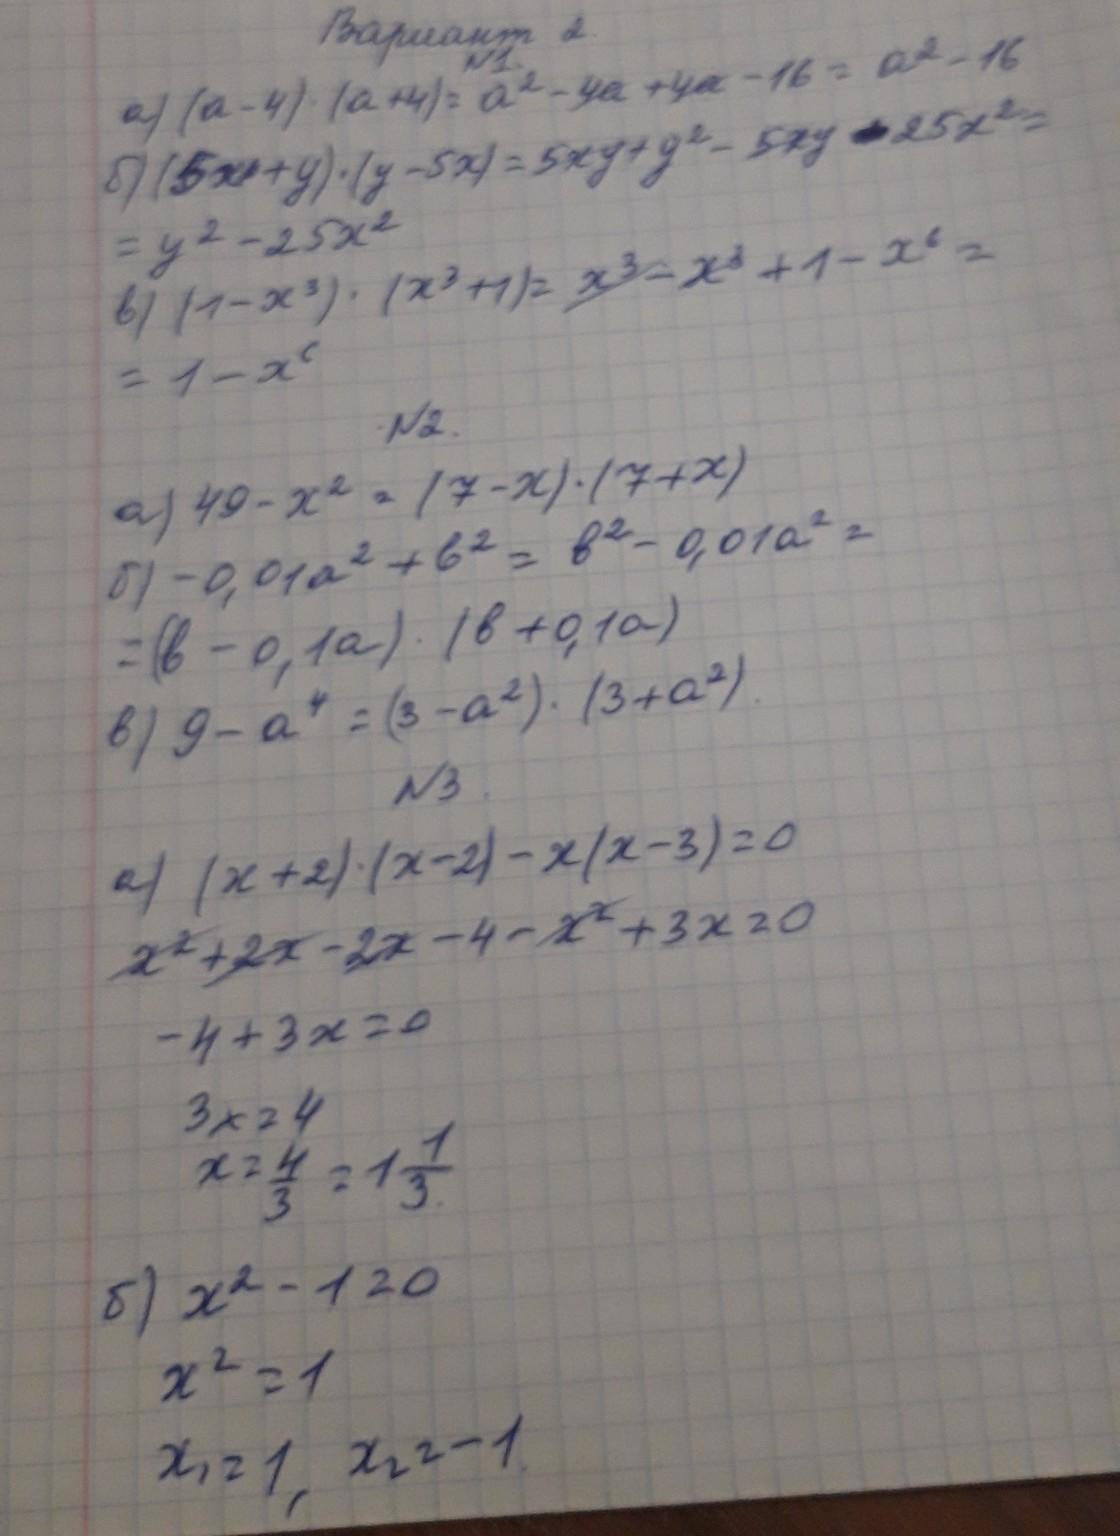 Вариант 2.
№1.
а) (a-4)·(a+4)= a²-4a+4a-16= a²-16
б) (5x+y)·(y-5x)=5xy+y²-5xy-25x²=
=y²-25x²
в) (1-x³)·(x³+1)= x³-x³+1-x⁶=
=1-x⁶
№2.
а) 49-x²=(7-x)·(7+x)
б) -0,01a²+b²= b²-0,01a²=
=(b-0,1a)·(b+0,1a)
в) 9-a⁴=(3-a²)·(3+a²).
№3.
а) (x+2)·(x-2)-x(x-3)=0
x²+2x-2x-4-x²+3x=0
-4+3x=0
3x=4
x=4/3=1 1/3.
б) x²-1=0
x²=1
x₁=1, x₂=-1.